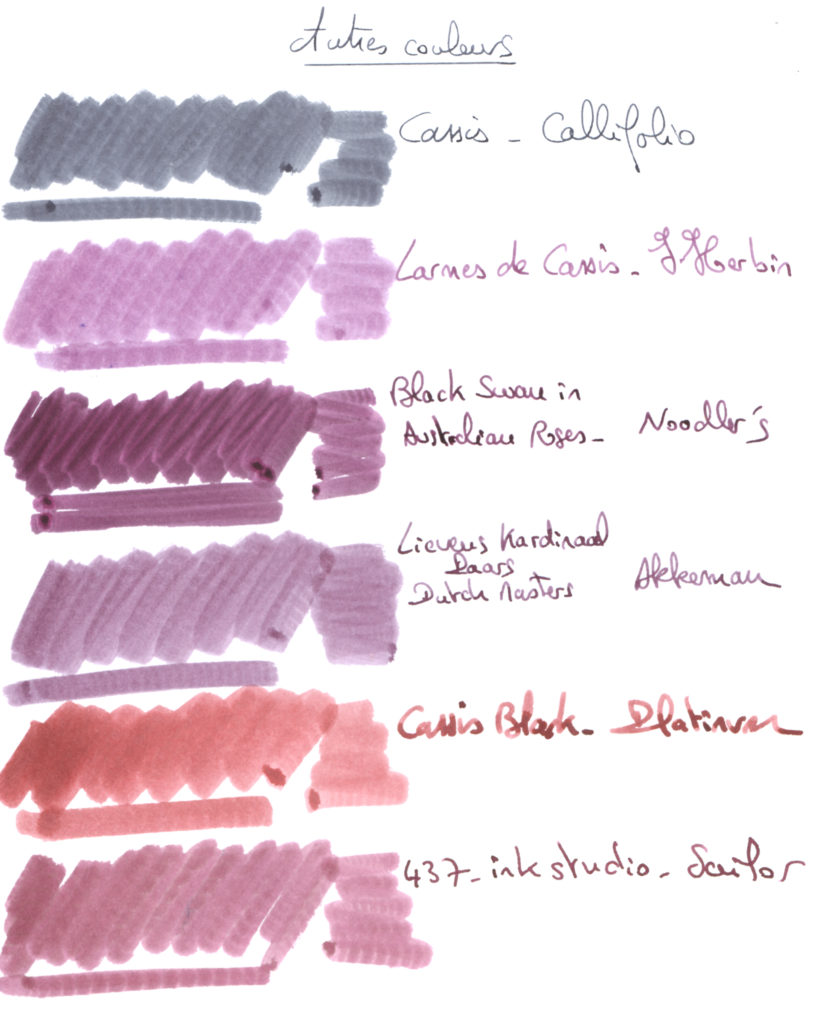 Autres couleurs
Cassis - Callifolio
Larmes de Cassis - J Herbin
Black Swan in
Australian Roses - Noodler's
Lievens Kardinaal
Paars
Dutch Masters Akkerman
Cassis Black - Platinum
437 - ink studio - Sailor